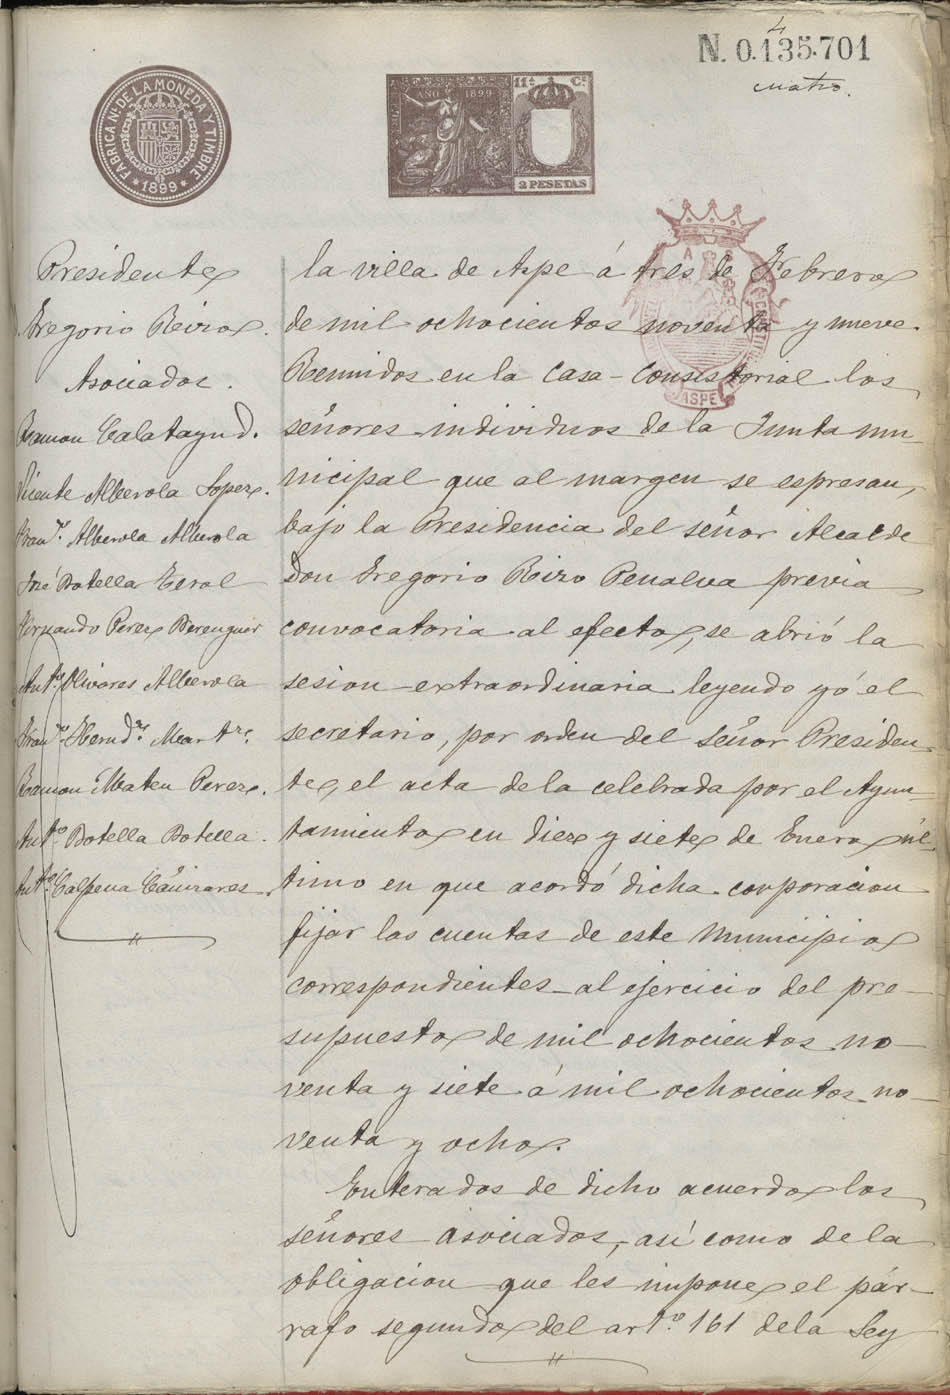 4
N. 0.135.701
cuatro.
FABRICA NL. DE LA MONEDA Y TIMBRE
* 1899 *
AÑO 1899
11ª Cª
2 PESETAS
ASPE
Presidente
Gregorio Rizo.
Asociados.
Ramon Calatayud.
Vicente Alberola Lopez.
Franco. Alberola Alberola
José Botella Erol
Fernando Perez Berenguer
Anto. Olivares Alberola
Franco. Hernds. Martz.
Ramon Mateu Perez.
Anto. Botella Botella.
Anto. Calpena Cañizares.
la villa de Aspe á tres de Febrero
de mil ochocientos noventa y nueve.
Reunidos en la Casa-Consistorial los
señores individuos de la Junta mu-
nicipal que al margen se espresan,
bajo la Presidencia del señor Alcalde
Don Gregorio Rizo Penalva previa
convocatoria al efecto, se abrió la
sesion extraordinaria leyendo yó el
secretario, por orden del señor Presiden-
te, el acta de la celebrada por el Ayun-
tamiento en diez y siete de Enero úl-
timo en que acordó dicha corporacion
fijar las cuentas de este Municipio
correspondientes al ejercicio del pre-
supuesto de mil ochocientos no-
venta y siete á mil ochocientos no-
venta y ocho.
Enterados de dicho acuerdo los
señores asociados, así como de la
obligacion que les impone el pár-
rafo segundo del arto. 161 de la Ley